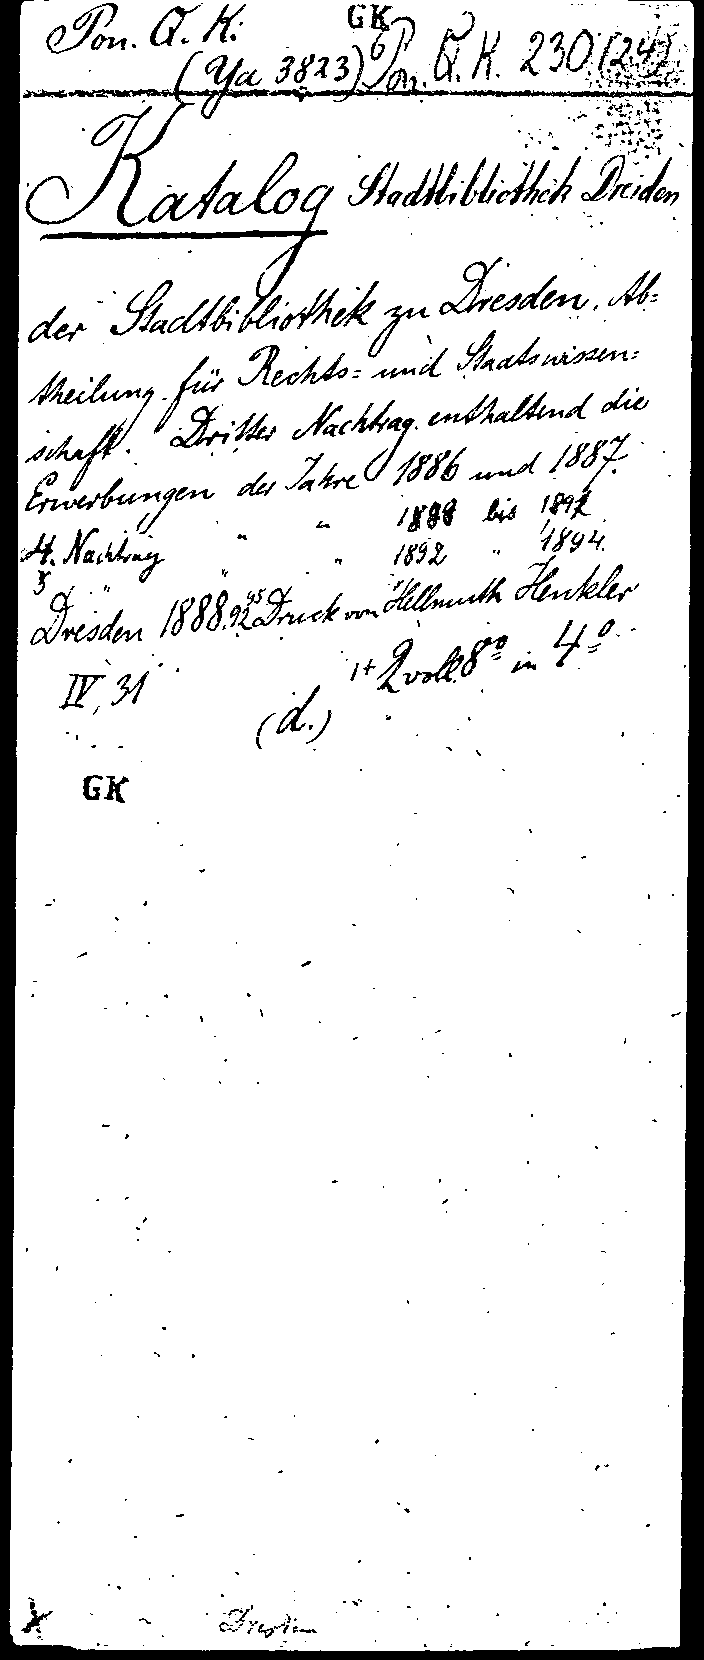 Pon. Q. K. GK
(Ya 3823) Pon. Q. K. 230 (24)
Katalog Stadtbibliothek Dresden
der Stadtbibliothek zu Dresden. Ab=
theilung für Rechts= und Staatswissen=
schaft. Dritter Nachtrag enthaltend die
Erwerbungen der Jahre 1886 und 1887.
4. Nachtrag " " 1888 bis 1892
5 " " " 1892 " 1894.
Dresden 1888.92.95 Druck von Hellmuth Henkler
IV, 31 1+2 voll. 8°° in 4°
(d.)
GK
Dresden